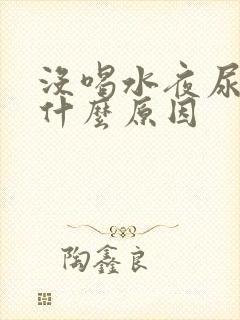 沒喝水夜尿
什麼原因
陶鑫良